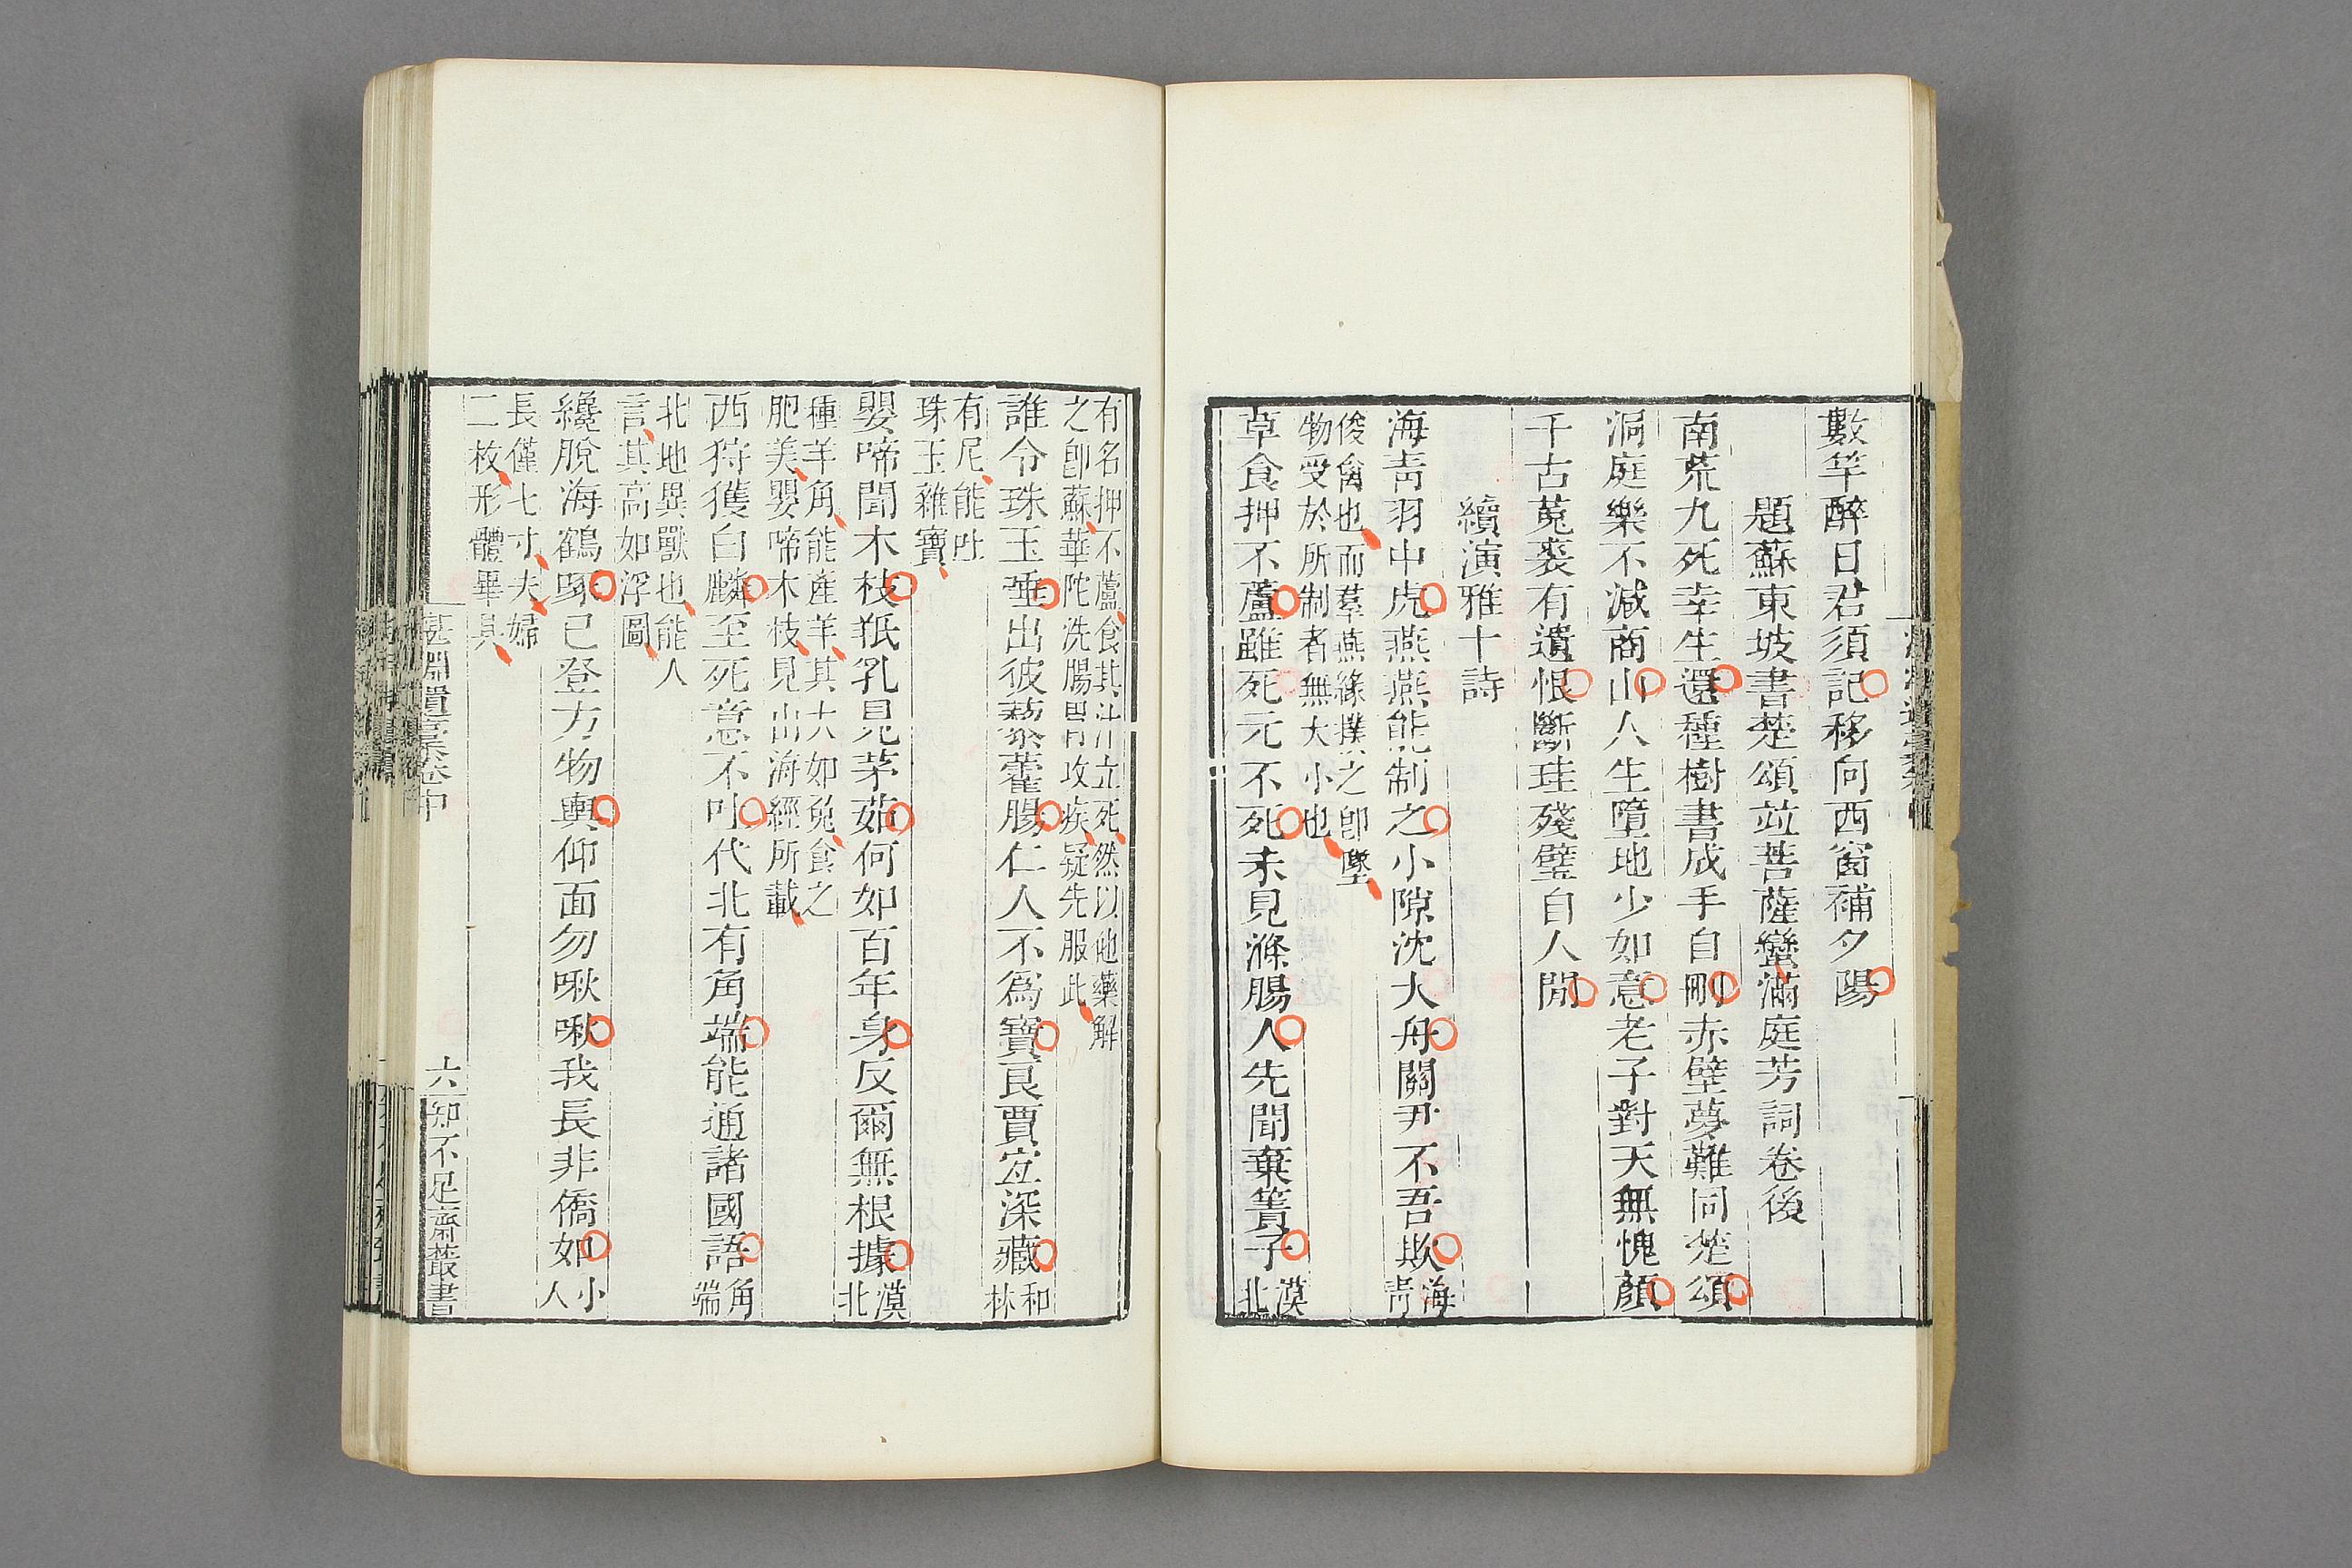 數竿醉日君須記移向西窗補夕陽
題蘇東坡書楚頌竝菩薩蠻滿庭芳詞卷後
南荒九死幸生還種樹書成手自刪赤壁夢難同楚頌
洞庭樂不減商山人生墮地少如意老子對天無愧顏
千古菟裘有遺恨斷珪殘璧自人閒
續演雅十詩
海青羽中虎燕燕能制之小隙沈大舟關尹不吾欺海
青
俊禽也而羣燕緣撲之卽墜
物受於所制者無大小也
草食押不蘆雖死元不死未見滌腸人先聞棄簀子漠
北
有名押不蘆食其汁立死然以他藥解
之卽蘇華陀洗腸胃攻疾疑先服此
誰令珠玉唾出彼藜藿腸仁人不爲寶良賈宜深藏和
林
有尼能吐
珠玉雜寶
嬰啼聞木枝羝乳見茅茹何如百年身反爾無根據漠
北
種羊角能產羊其大如兔食之
肥美嬰啼木枝見山海經所載
西狩獲白麟至死意不吐代北有角端能通諸國語角
端
北地異獸也能人
言其高如浮圖
纔脫海鶴啄已登方物輿仰面勿啾啾我長非僑如小
人
長僅七寸夫婦
二枚形體畢具
湛淵遺稾卷中
六
知不足齋叢書